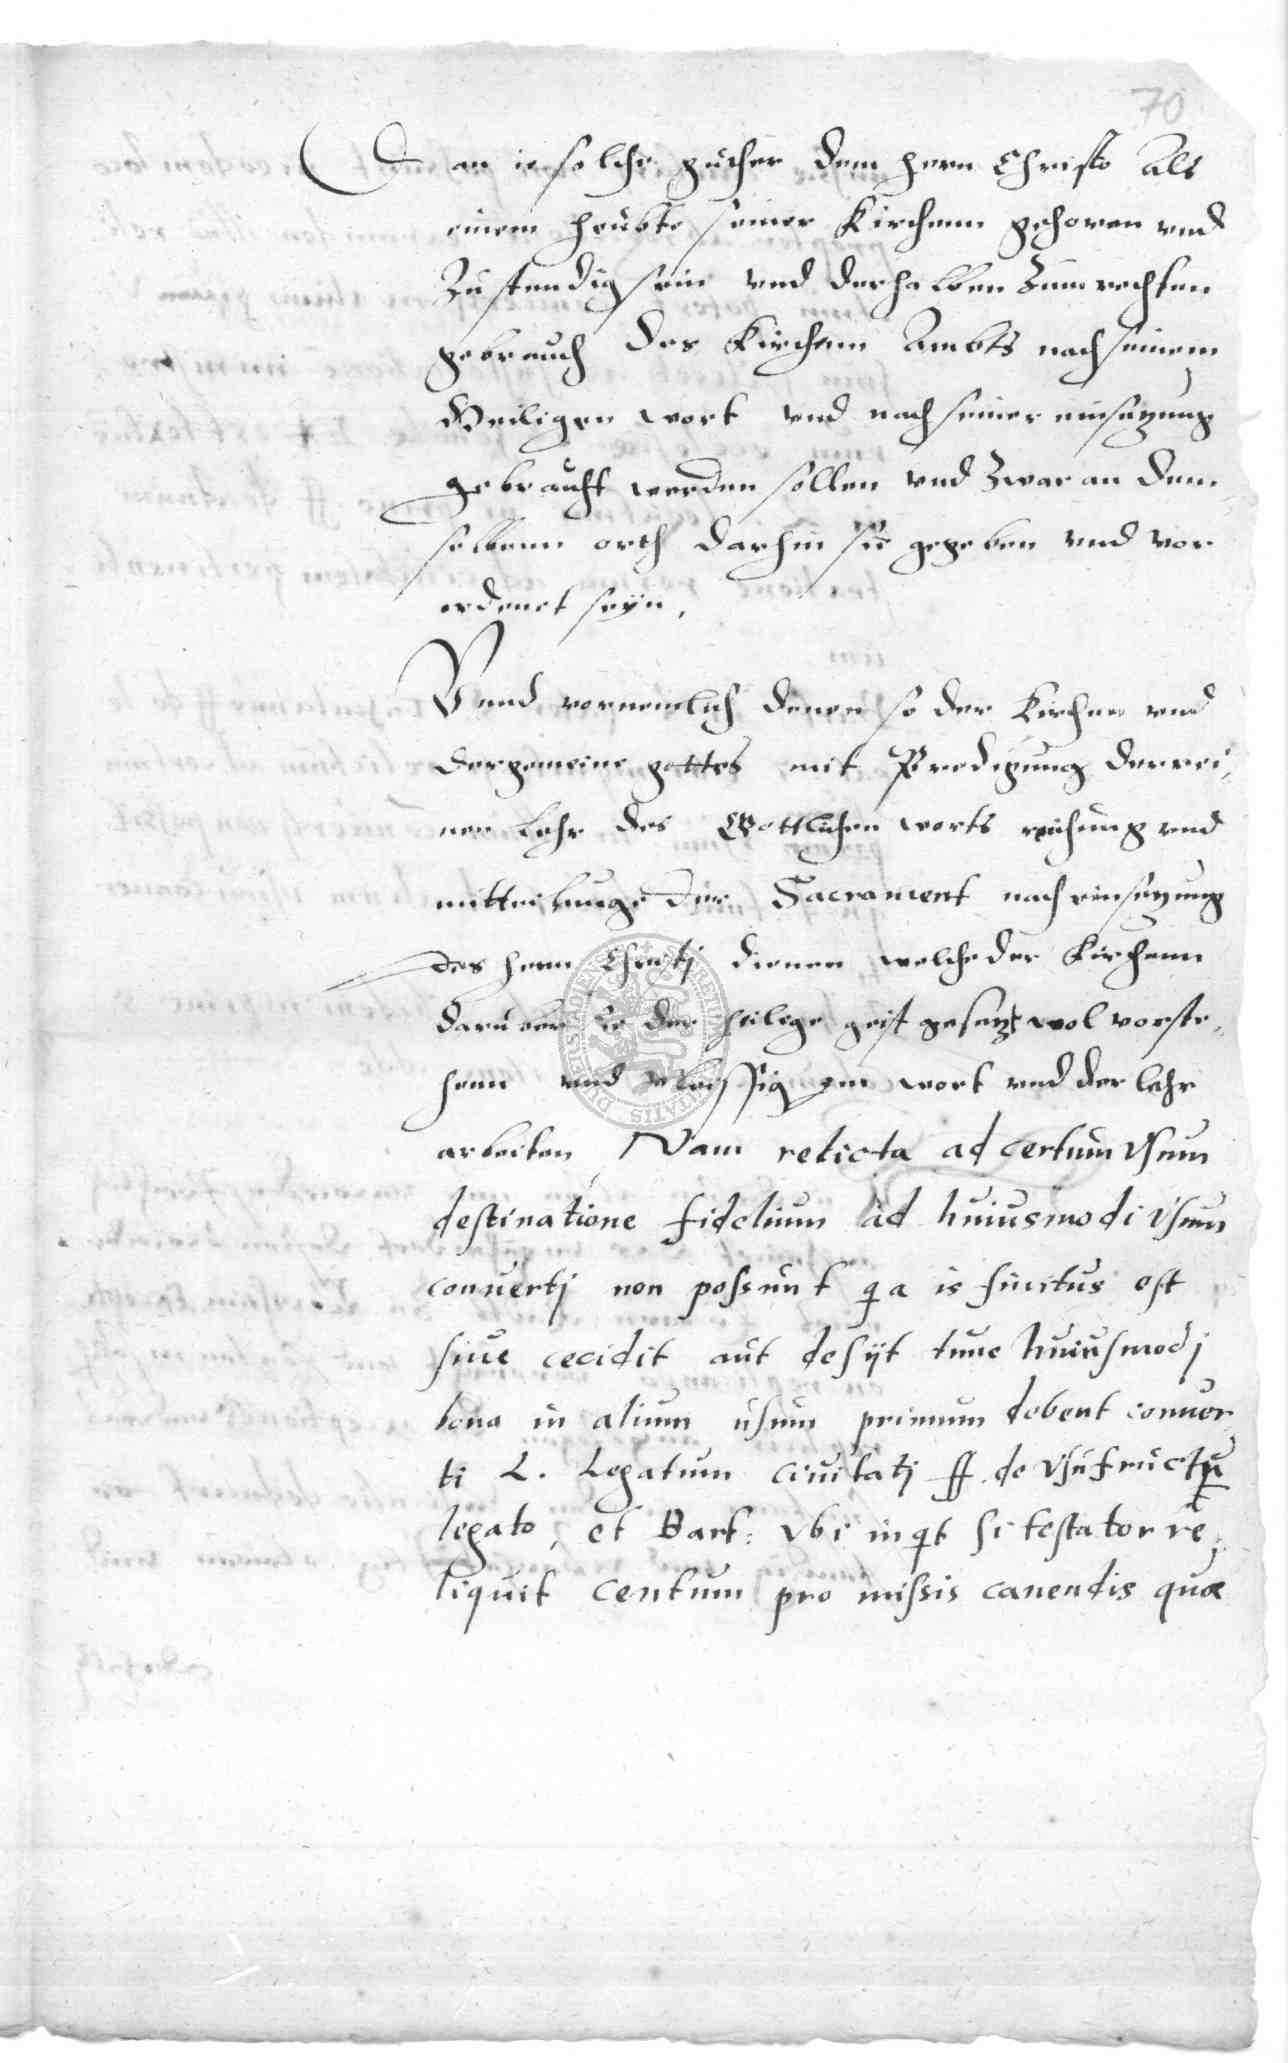 70
Dan ie solche guther dem hern Christo Als
einem heubte seiner Kirchenn gehoren vnd
Zustendig sein vnd derhalben Zum rechten
gebrauch des Kirchenn Ambts nach seinem
Heiligen wort vnd nach seiner einsetzung
gebraucht werden sollen vnd Zwar an dem
selbenn orth darhin sie gegeben vnd vor
ordenet seyn.
Vnnd vornemlich denen so der Kirchen vnd
der gemeine gottes mit Predigung der rei
ner Lehr des Gottlichen worts reichung vnd
mitteilunge der Sacrament nach einsetzung
des hern Christj dienen welche der Kirchenn
daruber sie der heilige geist gesetzt wol vorste
henn vnd vleissig am wort vnd der lehr
arbeiten Nam relicta ad certum vsum
destinatione fidelium ad huiusmodi vsum
conuertj non possunt qa is finitus est
siue cecidit aut desijt tunc huiusmodj
bona in alium usum primum debent conuer
ti L. Legatum ciuitatj ff de vsufructu
legato, et Bart: vbi inqt si testator re
liquit centum pro missis canendis quae